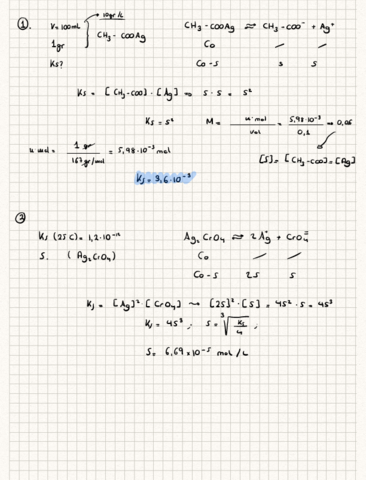 ①. V=100mL 10gr/L CH3-COOAg ⇌ CH3-COO⁻ + Ag⁺
1gr CH3-COOAg Co
Ks? Co-s s s
Ks = [CH3-COO]·[Ag] ⇒ s·s = s²
Ks = s² M = n·mol / vol = 5,98·10⁻³ / 0,1 = 0,06
n mol = 1 gr / 167 gr/mol = 5,98·10⁻³ mol [S] = [CH3-COO] = [Ag]
Ks = 3,6·10⁻³
②
Ks (25C) = 1,2·10⁻¹² Ag2CrO4 ⇌ 2Ag⁺ + CrO4⁼
S. (Ag2CrO4) Co
Co-s 2s s
Ks = [Ag]²·[CrO4] → [2s]²·[s] = 4s²·s = 4s³
Ks = 4s³ ; s = ∛(Ks/4) ;
S = 6,69×10⁻⁵ mol/L